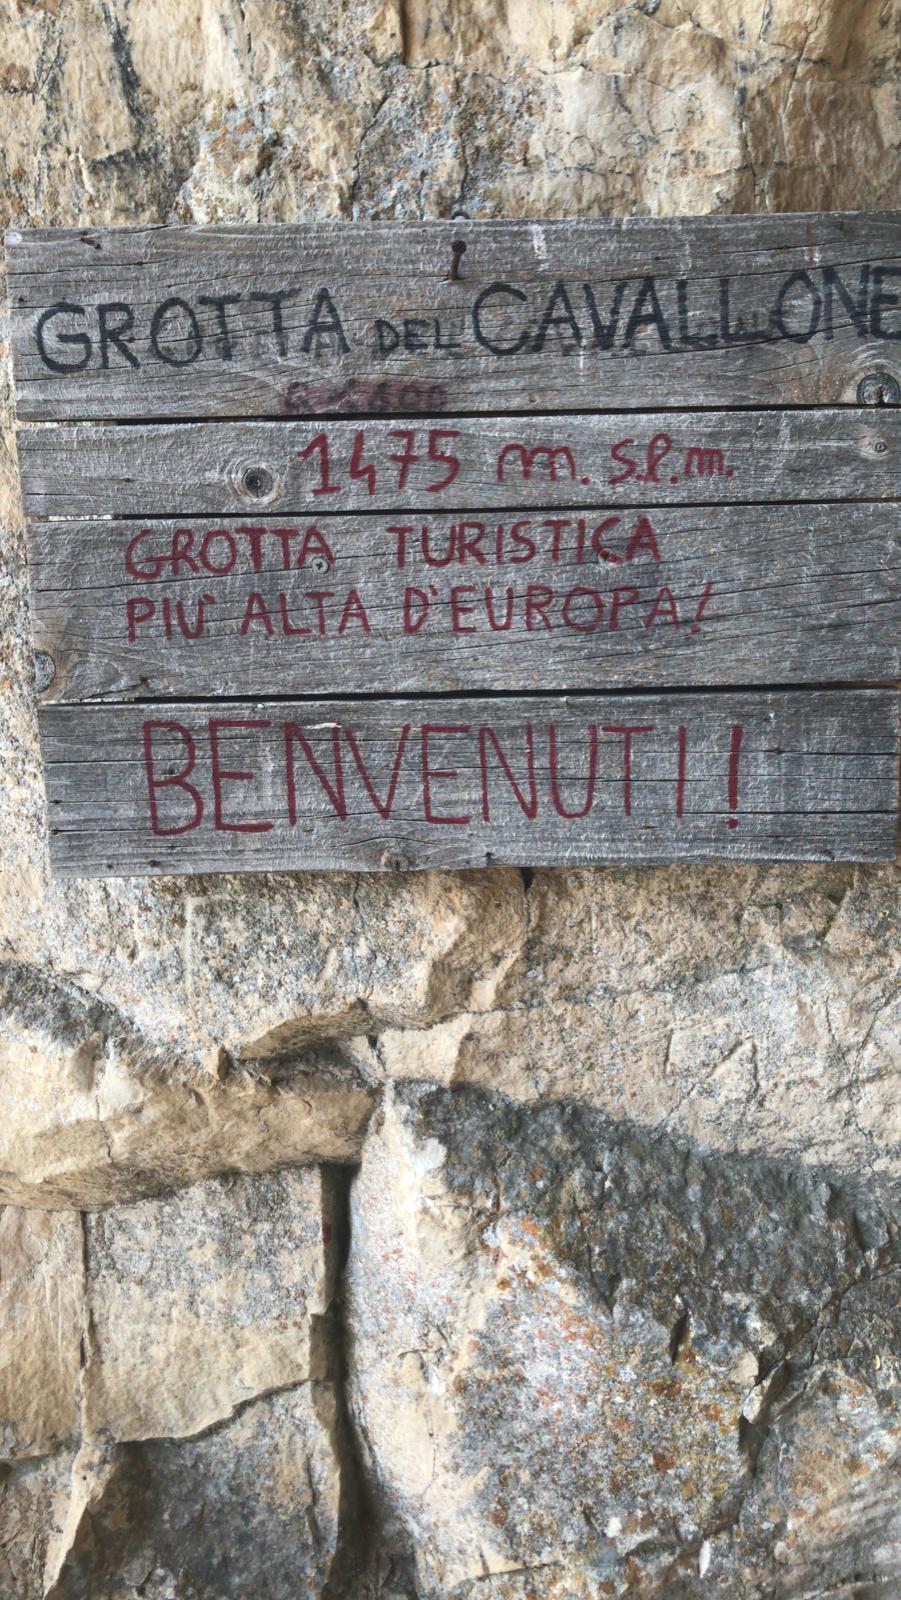 GROTTA DEL CAVALLONE
1475 m. s.l.m.
GROTTA TURISTICA
PIU' ALTA D'EUROPA!
BENVENUTI!